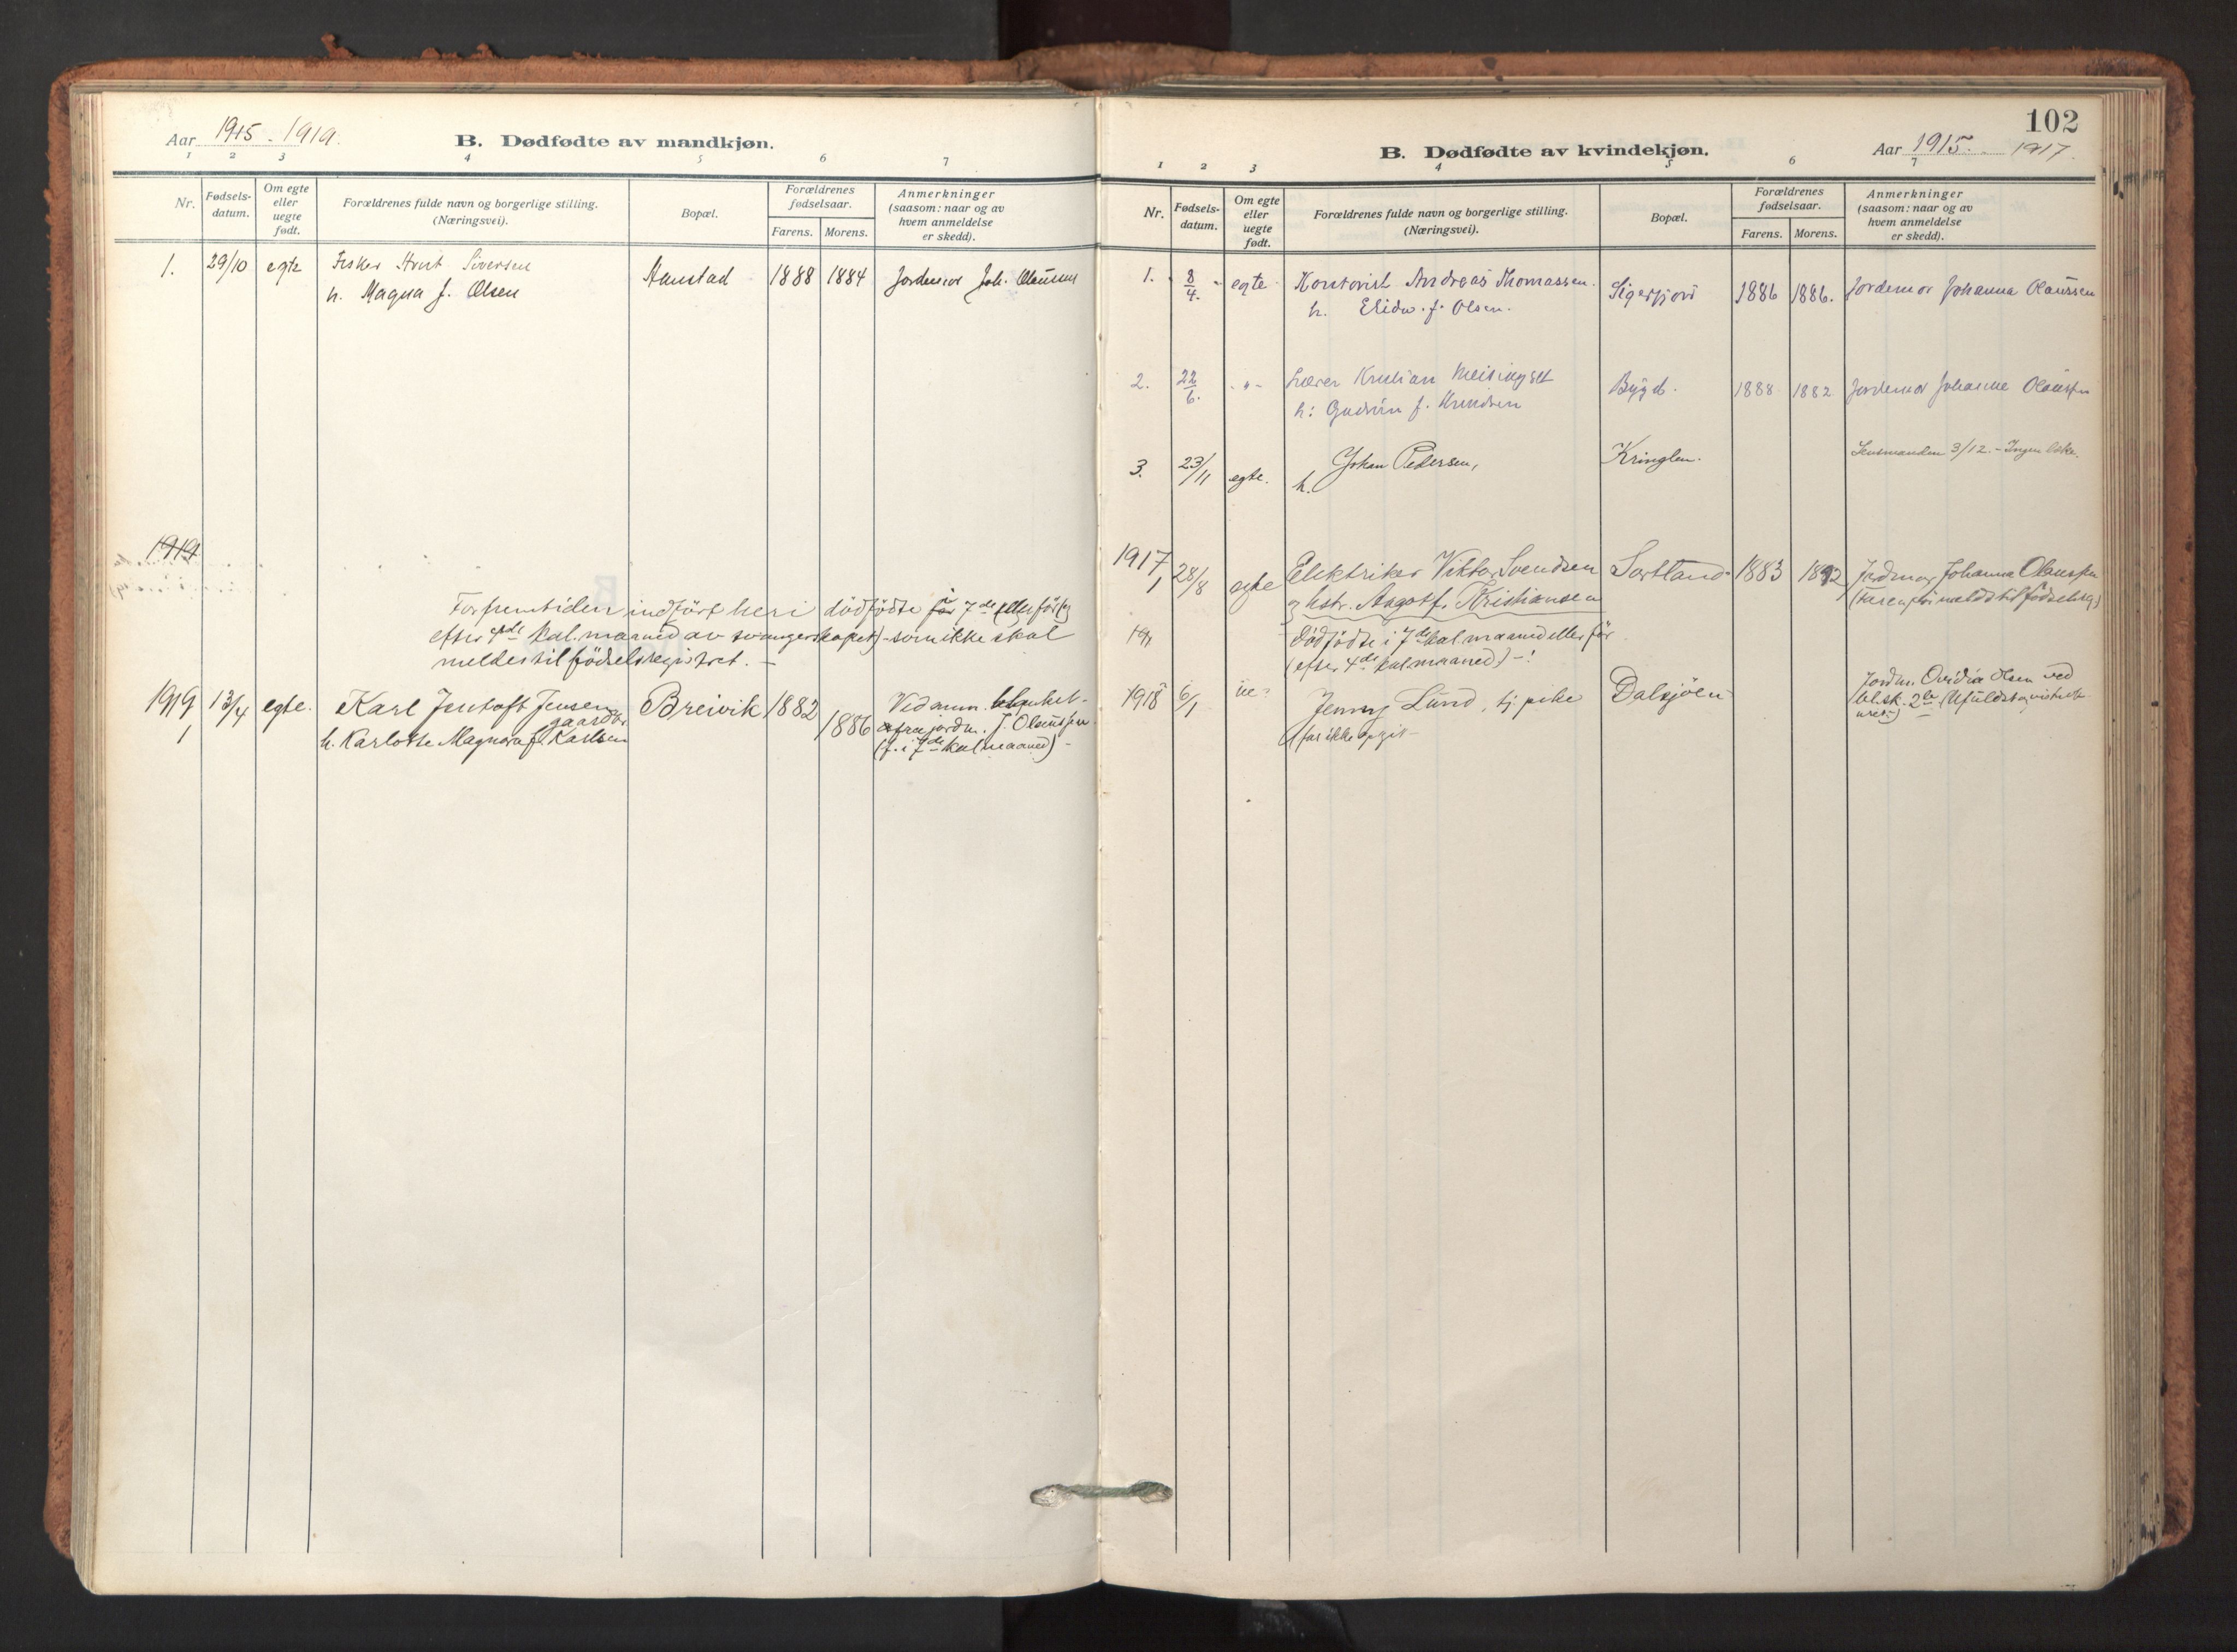 Aar 1915 - 1919.
B. Dødfødte av mandkjøn.
1 2 3 4 5 6 7
Nr.
Fødsels-
datum.
Om egte
eller
uegte
født.
Forældrenes fulde navn og borgerlige stilling.
(Næringsvei).
Bopæl.
Forældrenes
fødselsaar.
Farens. Morens.
Anmerkninger
(saasom: naar og av
hvem anmeldelse
er skedd).
1. 29/10 egte Fisker Siversen 1888 1884 Jordemor Joh. Olaussen
h. Magna f. Olsen
1919
For fremtiden indført heri dødfødte før 7de (eller før og
efter 4de kal. maaned av svangerskapet) - som ikke skal
meldes til fødselsregistret. -
1919 13/4 egte. Karl Jentoft Jensen Breivik 1882 1886
1 gaardbr.
h. Karlotte Magnora f. Karlsen
fra jordm. J. Olaussen
(f. i 7de kal maaned) -
102
B. Dødfødte av kvindekjøn.
Aar 1915. - 1917.
1 2 3 4 5 6 7
Nr.
Fødsels-
datum.
Om egte
eller
uegte
født.
Forældrenes fulde navn og borgerlige stilling.
(Næringsvei).
Bopæl.
Forældrenes
fødselsaar.
Farens. Morens.
Anmerkninger
(saasom: naar og av
hvem anmeldelse
er skedd).
1. 8/4. egte Kontorist Andreas Thomassen. Sigerfjord 1886 1886. Jordemor Johanna Olaussen
h. f. Olsen.
2. 22/6. - " - Lærer Kristian Meisingset Bygd. 1888 1882 Jordemor Johanne Olaussen
h: Gudrun f. Knudsen
3. 23/11 egte. Johan Pedersen, Kringlen. Lensmanden 3/12. - Ingen
h.
1917 28/8 egte Elektriker Viktor Svendsen Sortland 1883 1892 Jordmor Johanna Olaussen
1 og hstr. Aagot f. Kristiansen
Dødfødte i 7de kal. maaned eller før
(efter 4de kal maaned) - :
1918 6/1 ue. Jenny Lund, tj. pike Dalsjöen Jordm. Ovidia Olsen ved
(far ikke opgit -